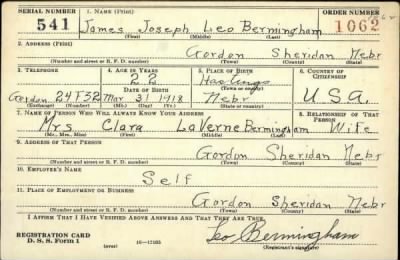 SERIAL NUMBER 1. NAME (Print) ORDER NUMBER
541 James Joseph Leo Bermingham 1062
(First) (Middle) (Last)
2. ADDRESS (Print)
Gordon Sheridan Nebr
(Number and street or R. F. D. number) (Town) (County) (State)
3. TELEPHONE 4. AGE IN YEARS 5. PLACE OF BIRTH 6. COUNTRY OF CITIZENSHIP
22 Hastings
DATE OF BIRTH (Town or county)
Gordon 24F32 Mar 31 1918 Nebr U.S.A.
(Exchange) (Number) (Mo.) (Day) (Yr.) (State or country)
7. NAME OF PERSON WHO WILL ALWAYS KNOW YOUR ADDRESS 8. RELATIONSHIP OF THAT PERSON
Mrs Clara LaVerne Bermingham Wife
(Mr., Mrs., Miss) (First) (Middle) (Last)
9. ADDRESS OF THAT PERSON
Gordon Sheridan Nebr
(Number and street or R. F. D. number) (Town) (County) (State)
10. EMPLOYER'S NAME
Self
11. PLACE OF EMPLOYMENT OR BUSINESS
Gordon Sheridan Nebr
(Number and street or R. F. D. number) (Town) (County) (State)
I AFFIRM THAT I HAVE VERIFIED ABOVE ANSWERS AND THAT THEY ARE TRUE.
REGISTRATION CARD
D. S. S. Form 1 16—17105 Leo Bermingham
(Registrant's signature)